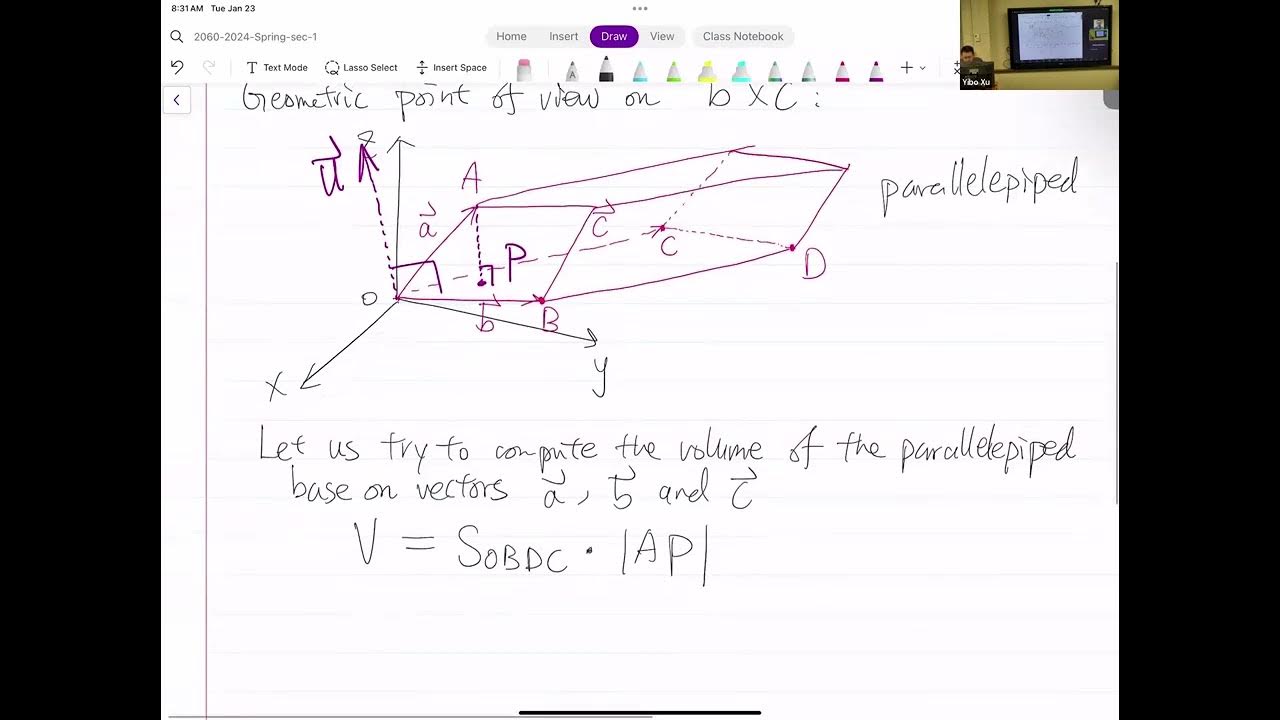 8:31 AM Tue Jan 23
2060-2024-Spring-sec-1
Home Insert Draw View Class Notebook
Text Mode Lasso Select Insert Space
Yibo Xu
Geometric point of view on b × c :
z
u⃗
A
parallelepiped
a⃗
c⃗
C
P
D
O
b⃗
B
x
y
Let us try to compute the volume of the parallelepiped
base on vectors a⃗, b⃗ and c⃗
V = S_OBDC · |AP|